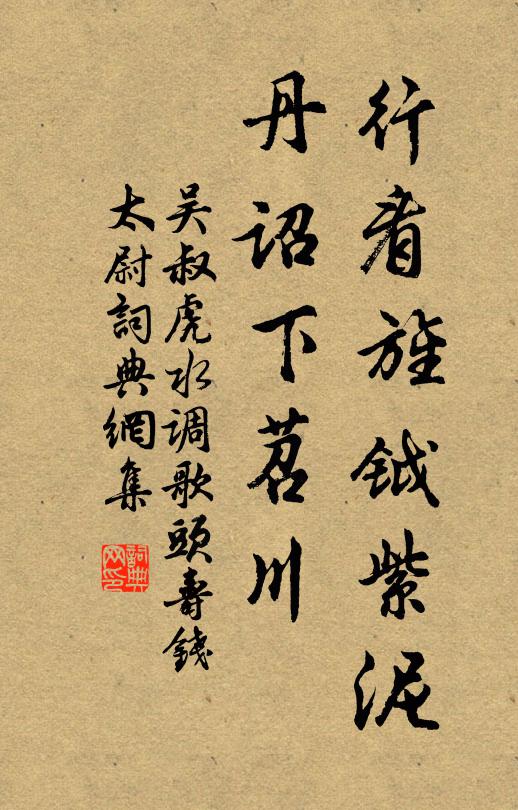 行看旌鉞紫泥
丹詔下苕川
吴叔虎水调歌頭壽錢
太尉詞典網集
詞典
网印